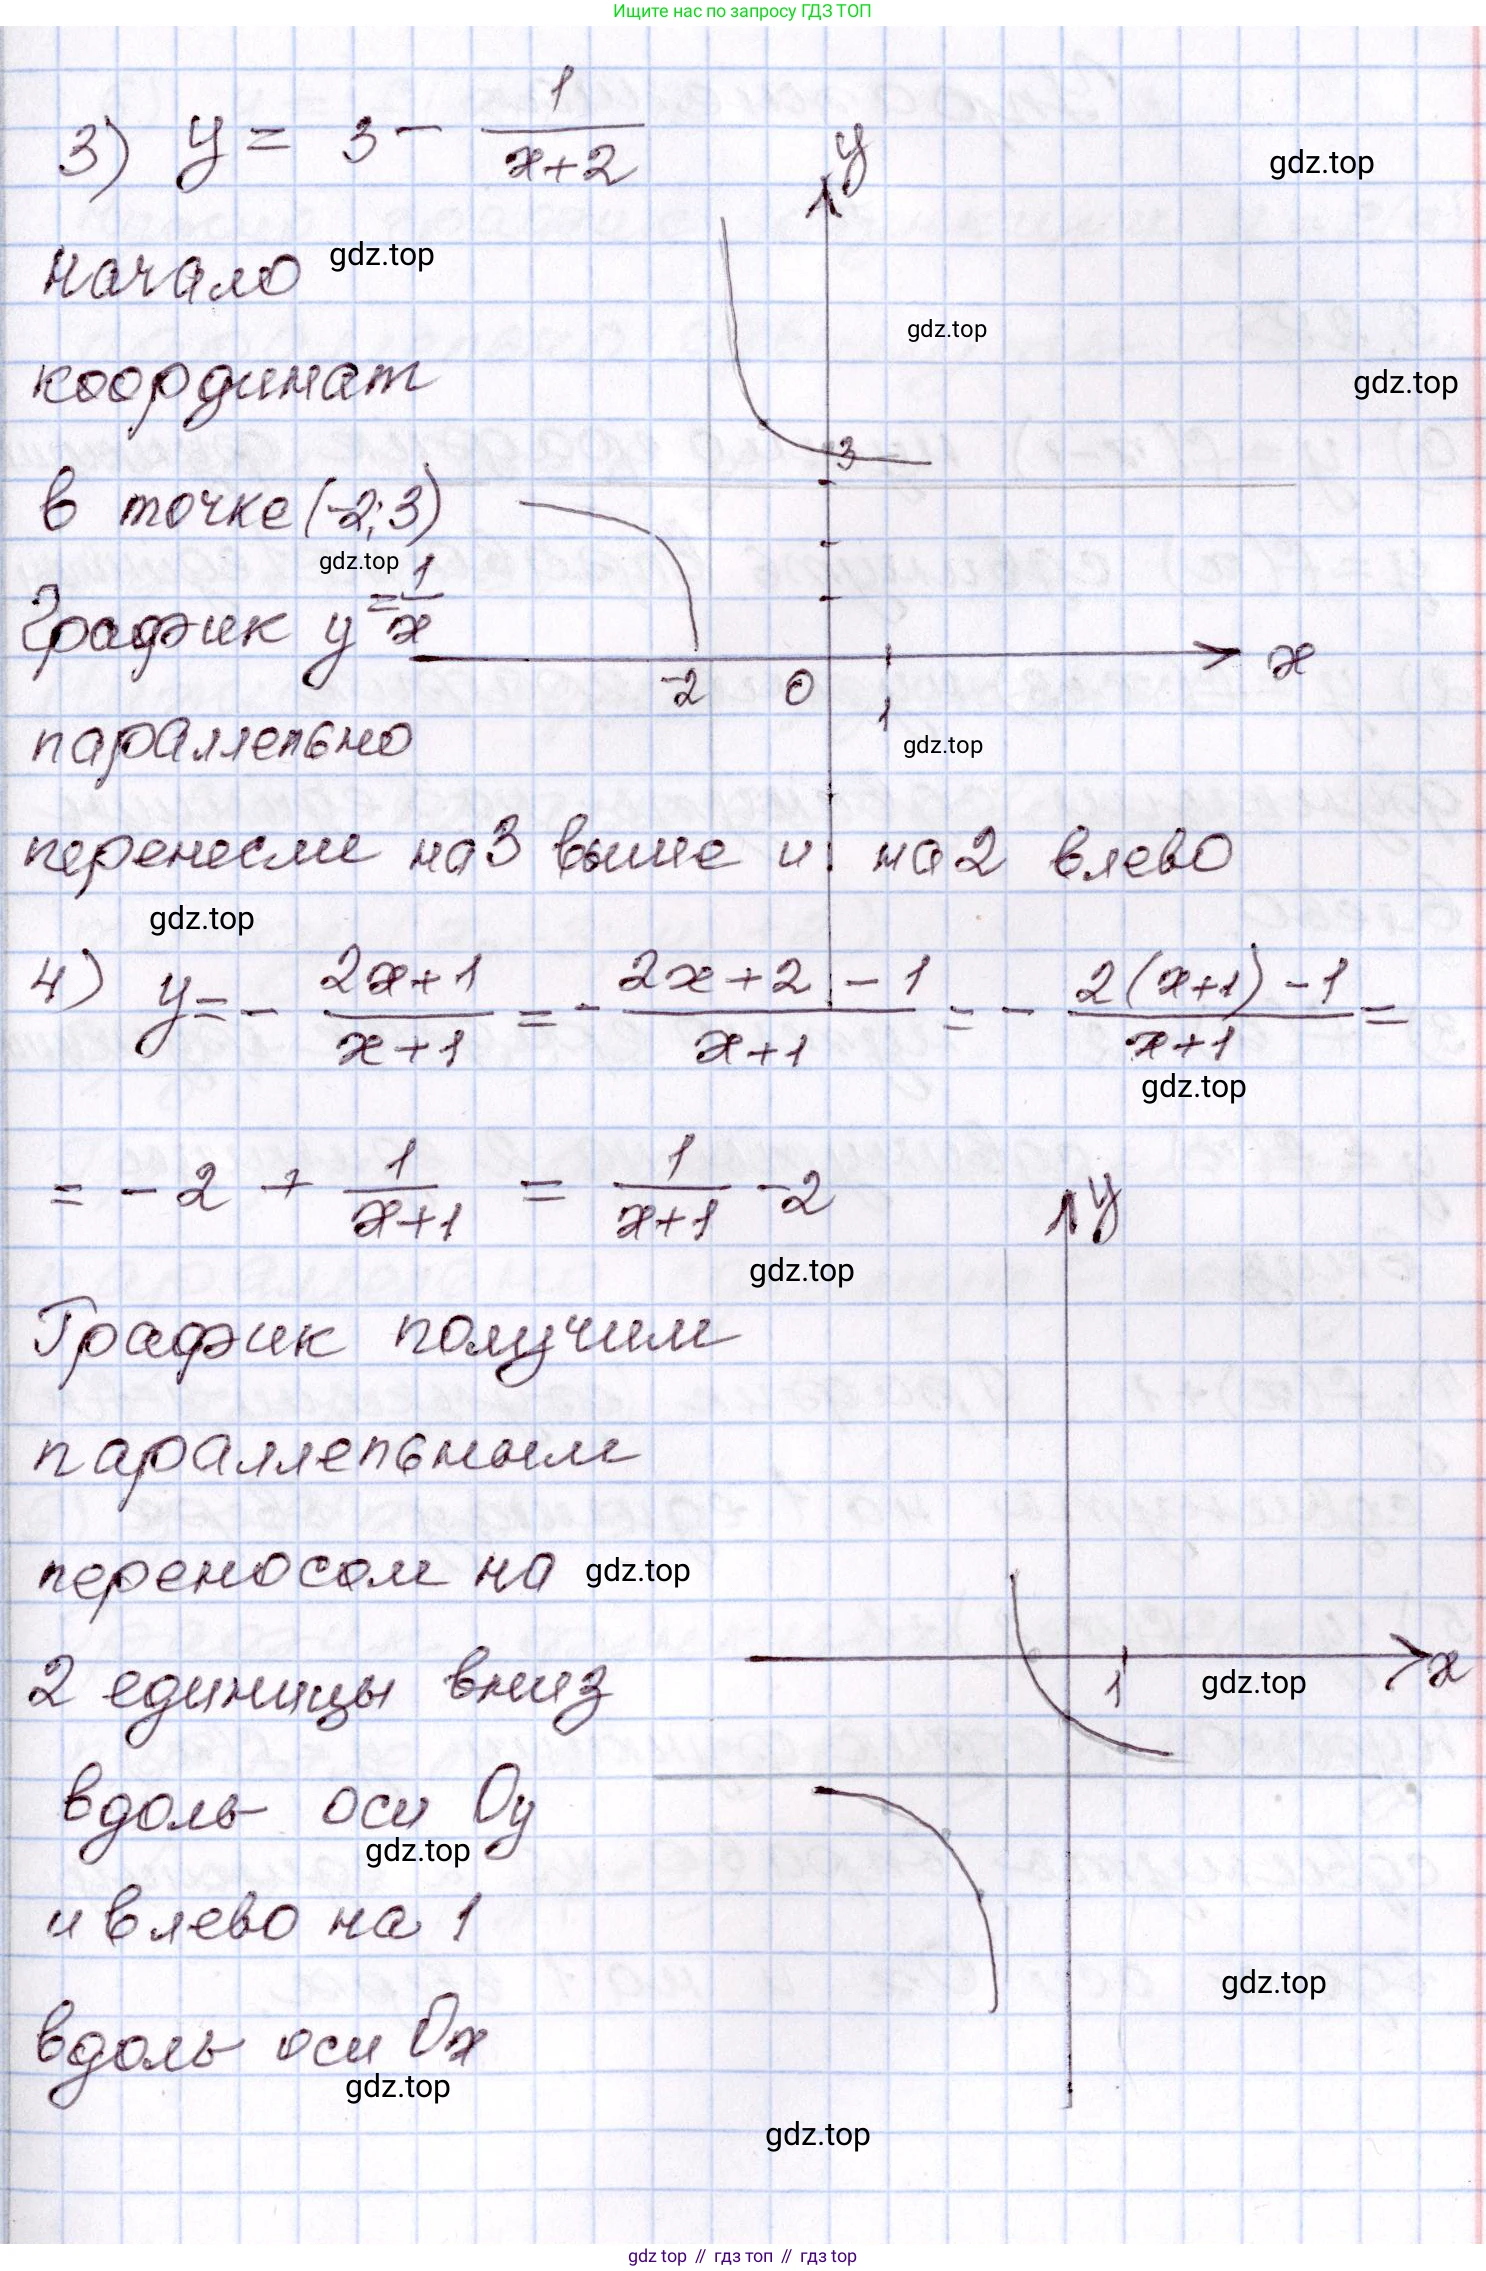 Ищите нас по запросу ГДЗ ТОП
3) y = 3 - 1/(x+2)
y
gdz.top
начало
gdz.top
gdz.top
координат
gdz.top
3
в точке (-2; 3)
gdz.top
График y = 1/x
-2 0 1 x
параллельно
gdz.top
перенесли на 3 выше и на 2 влево
gdz.top
4) y = - (2x+1)/(x+1) = - (2x+2-1)/(x+1) = - (2(x+1)-1)/(x+1) =
gdz.top
= -2 + 1/(x+1) = 1/(x+1) - 2
y
gdz.top
График получим
параллельным
переносом на
gdz.top
1 x
gdz.top
2 единицы вниз
вдоль оси Oy
gdz.top
и влево на 1
gdz.top
вдоль оси Ox
gdz.top
gdz.top
gdz top // гдз топ // gdz top